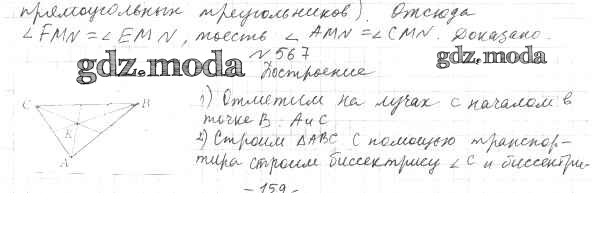 прямоугольных треугольников). Отсюда
∠FMN = ∠EMN, тоесть ∠AMN = ∠CMN. Доказано.
№ 567
gdz.moda
gdz.moda
Построение
C
B
K
A
1) Отметим на лучах с началом в
точке B : A и C
2) Строим △ABC с помощью транспор-
тира строим биссектрису ∠C и биссектри-
- 159 -